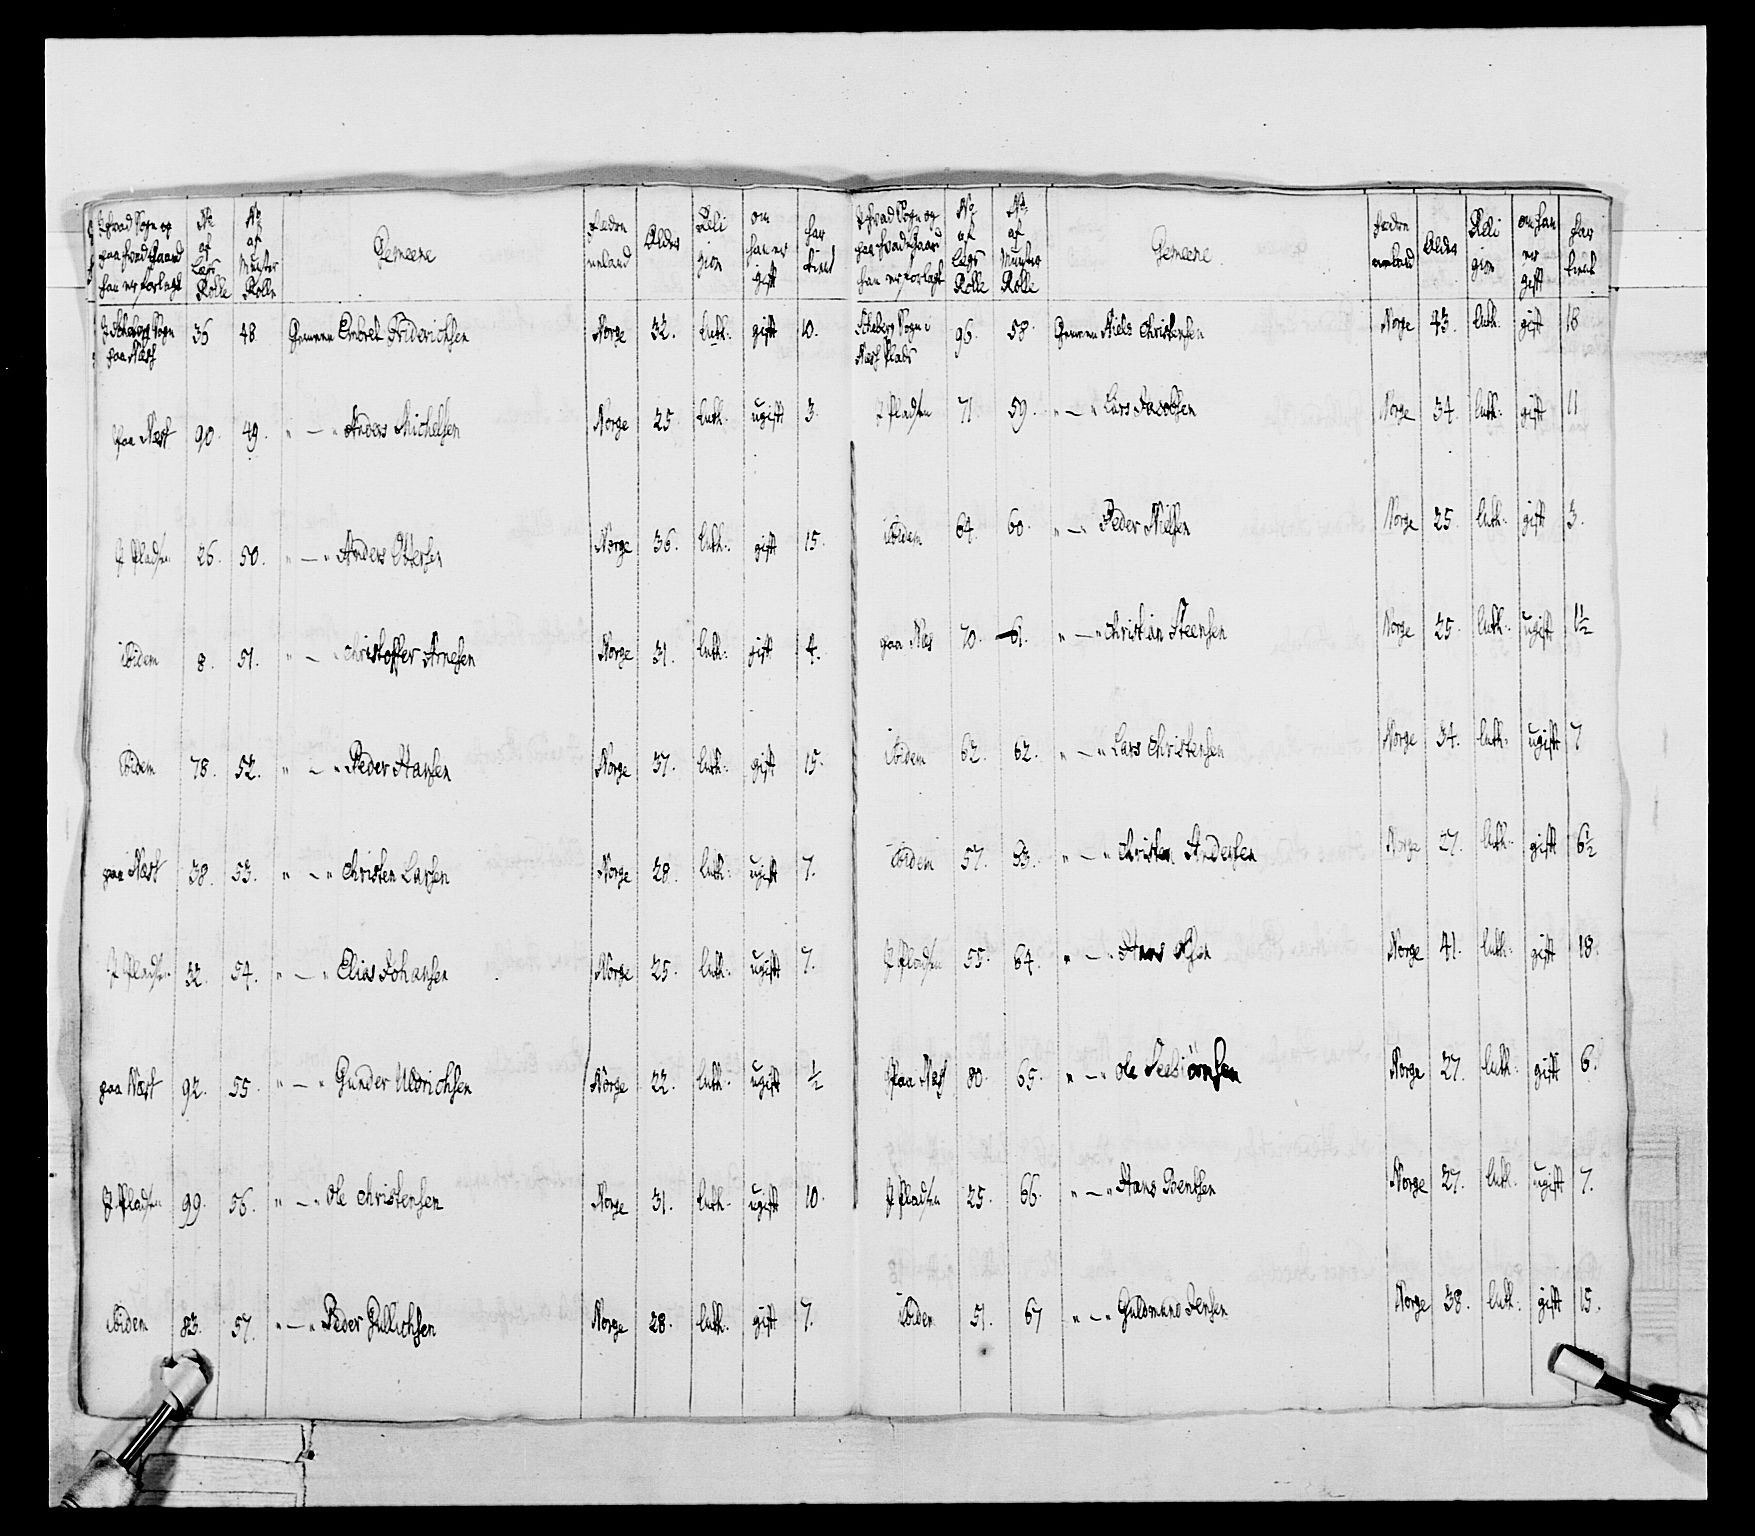 I hvad Sogn og paa hvad Gaard han er forlagt | No af Lægs Rolle | No af Munster Rolle | Gemeene | Fædrneland | Alder | Religion | om han er gift | har tient
I Sogn paa Næss | 36 | 48 | Gemeen Embret Friderichsen | Norge | 32. | Luth. | gift | 10.
paa Næss | 90. | 49. | " — " Anders Michelsen | Norge | 25. | Luth. | ugift | 3.
I Pladsen | 26. | 50. | " — " Anders Ottersen | Norge | 36. | luth. | gift | 15.
ibidem | 8. | 51. | " — " Christoffer Arnesen | Norge | 31. | luth. | gift | 4.
ibidem | 78. | 52. | " — " Peder Hansen | Norge | 37. | luth. | gift | 15.
paa Næss | 38. | 53. | " — " Christen Larsen | Norge | 28. | luth. | ugift | 7.
I Pladsen | 32. | 54. | " — " Elias Johansen | Norge | 25. | luth. | ugift | 7.
paa Næss | 92. | 55. | " — " Gunder Uldrichsen | Norge | 22. | luth. | ugift | 1/2
I Pladsen | 99. | 56. | " — " Ole Christensen | Norge | 31. | luth. | ugift | 10.
ibidem | 83. | 57. | " — " Peder Gullichsen | Norge | 28. | luth. | gift | 7.
I hvad Sogn og paa hvad Gaard han er forlagt | No af Lægs Rolle | No af Munster Rolle | Gemeene | Fædrneland | Alder | Religion | om han er gift | har tient
Sogn i Næss Plads | 96. | 58. | Gemeen Niels Christensen | Norge | 43. | luth. | gift | 18
I Pladsen | 71. | 59. | " — " Lars Jacobsen | Norge | 34. | luth. | gift | 11
ibidem | 64. | 60. | " — " Peder Nielsen | Norge | 25. | luth. | gift | 3.
paa Næs | 70. | 61. | " — " Christian Steensen | Norge | 25. | luth. | ugift | 1 1/2
ibidem | 62. | 62. | " — " Lars Christensen | Norge | 34. | luth. | ugift | 7
ibidem | 57. | 53. | " — " Christen Andersen | Norge | 27. | luth. | gift | 6 1/2
I Pladsen | 55. | 64. | " — " Hans Olsen | Norge | 41. | luth. | gift | 18.
paa Næss | 80. | 65. | " — " Ole Seebiörnsen | Norge | 27. | luth. | gift | 6.
I Pladsen | 25. | 66. | " — " Hans Bentsen | Norge | 27. | luth. | ugift | 7.
ibidem | 51. | 67 | " — " Guldmund Jensen | Norge | 38. | luth. | gift | 15.